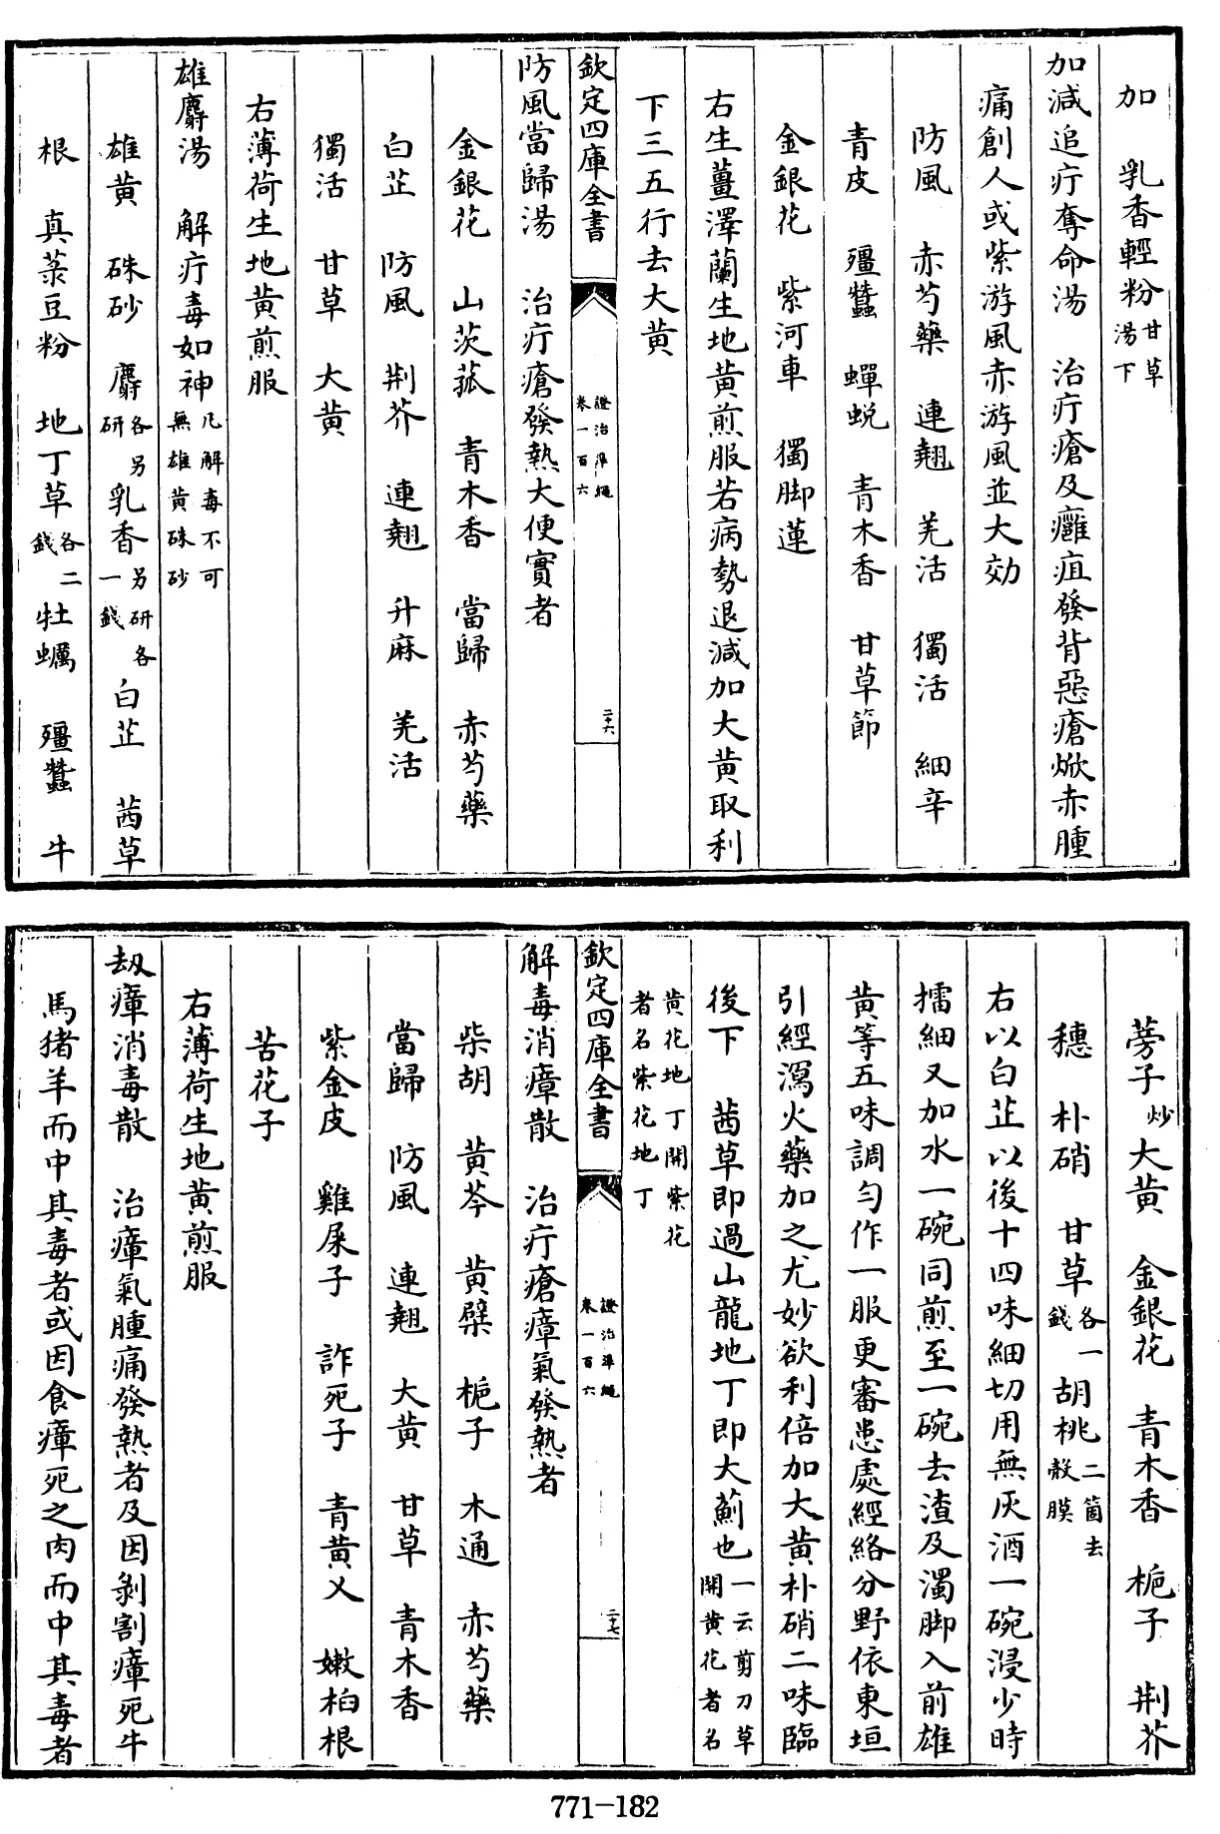 加　乳香輕粉甘草湯下
加減追疔奪命湯　治疔瘡及癰疽發背惡瘡焮赤腫
痛創人或紫游風赤游風並大効
防風　赤芍藥　連翹　羌活　獨活　細辛
青皮　殭蠶　蟬蛻　青木香　甘草節
金銀花　紫河車　獨脚蓮
右生薑澤蘭生地黃煎服若病勢退減加大黃取利
下三五行去大黃
欽定四庫全書
證治準繩
卷一百六
二十六
防風當歸湯　治疔瘡發熱大便實者
金銀花　山茨菰　青木香　當歸　赤芍藥
白芷　防風　荆芥　連翹　升麻　羌活
獨活　甘草　大黃
右薄荷生地黃煎服
雄麝湯　解疔毒如神凡解毒不可無雄黃硃砂
雄黃　硃砂　麝各另研乳香另研各一錢白芷　茜草
根　真菉豆粉　地丁草各二錢牡蠣　殭蠶　牛
蒡子炒大黃　金銀花　青木香　梔子　荆芥
穗　朴硝　甘草各一錢胡桃二箇去殼膜
右以白芷以後十四味細切用無灰酒一碗浸少時
擂細又加水一碗同煎至一碗去渣及濁脚入前雄
黃等五味調勻作一服更審患處經絡分野依東垣
引經瀉火藥加之尤妙欲利倍加大黃朴硝二味臨
後下　茜草即過山龍地丁即大薊也一云剪刀草開黃花者名
黃花地丁開紫花者名紫花地丁
欽定四庫全書
證治準繩
卷一百六
二十七
解毒消瘴散　治疔瘡瘴氣發熱者
柴胡　黃芩　黃檗　梔子　木通　赤芍藥
當歸　防風　連翹　大黃　甘草　青木香
紫金皮　雞屎子　詐死子　青黃乂　嫩柏根
苦花子
右薄荷生地黃煎服
刼瘴消毒散　治瘴氣腫痛發熱者及因剝割瘴死牛
馬猪羊而中其毒者或因食瘴死之肉而中其毒者
771-182